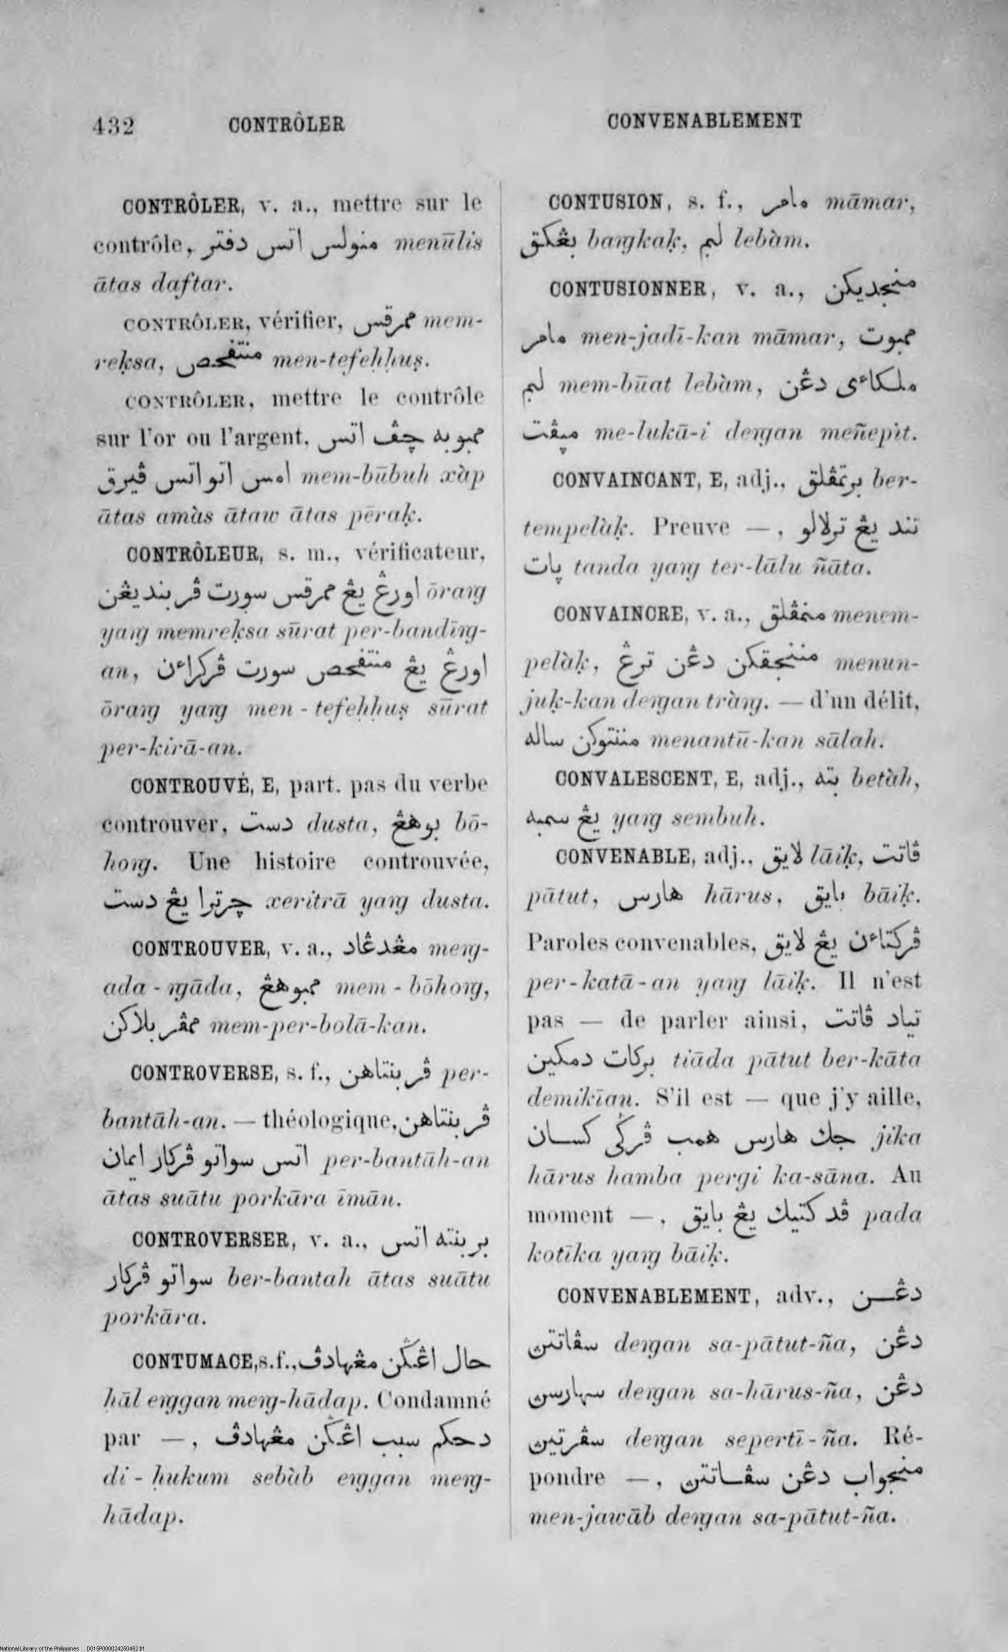 432 CONTRÔLER
CONVENABLEMENT
CONTRÔLER, v. a., mettre sur le
contrôle, منولس اتس دفتر menūlis
ātas daftar.
CONTRÔLER, vérifier, ممرقس mem-
reḳsa, منتفحص men-tefeḥḥuṣ.
CONTRÔLER, mettre le contrôle
sur l'or ou l'argent, ممبوبه چڤ اتس
امس اتو اتس ڤيرق mem-būbuh xàp
ātas amàs ātaw ātas pēraḳ.
CONTRÔLEUR, s. m., vérificateur,
اورڠ يڠ ممرقس سورت ڤربنديڠن ōraŋ
yaŋ memreḳsa sūrat per-bandīŋ-
an, اورڠ يڠ منتفحص سورت ڤركراءن
ōraŋ yaŋ men-tefeḥḥuṣ sūrat
per-kirā-an.
CONTROUVÉ, E, part. pas du verbe
controuver, دست dusta, بوهڠ bō-
hoŋ. Une histoire controuvée,
چرترا يڠ دست xeritrā yaŋ dusta.
CONTROUVER, v. a., مڠدڠاد meŋ-
ada-ŋāda, ممبوهڠ mem-bōhoŋ,
ممڤربلاكن mem-per-bolā-kan.
CONTROVERSE, s. f., ڤربنتاهن per-
bantāh-an. — théologique, ڤربنتاهن
اتس سواتو ڤركار ايمان per-bantāh-an
ātas suātu porkāra īmān.
CONTROVERSER, v. a., بربنته اتس
سواتو ڤركار ber-bantah ātas suātu
porkāra.
CONTUMACE, s. f., حال اڠڬن مڠهادڤ
ḥāl eŋgan meŋ-hādap. Condamné
par —, دحكم سبب اڠڬن مڠهادڤ
di-ḥukum sebàb eŋgan meŋ-
hādap.
CONTUSION, s. f., مامر māmar,
بڠكق baŋkaḳ, لبم lebàm.
CONTUSIONNER, v. a., منجديكن
مامر men-jadī-kan māmar, ممبوت
لبم mem-būat lebàm, ملكاءى دڠن
ميڤت me-lukā-i deŋan meñepìt.
CONVAINCANT, E, adj., برتمڤلق ber-
tempelàḳ. Preuve —, تند يڠ ترلالو
ڽات tanda yaŋ ter-lālu ñāta.
CONVAINCRE, v. a., منمڤلق menem-
pelàḳ, مننجقكن دڠن ترڠ menun-
juḳ-kan deŋan tràŋ. — d'un délit,
مننتوكن ساله menantū-kan sālah.
CONVALESCENT, E, adj., بته betàh,
يڠ سمبه yaŋ sembuh.
CONVENABLE, adj., لايق lāiḳ, ڤاتت
pātut, هارس hārus, بايق bāiḳ.
Paroles convenables, ڤركتاءن يڠ لايق
per-katā-an yaŋ lāiḳ. Il n'est
pas — de parler ainsi, تياد ڤاتت
بركات دمكين tiāda pātut ber-kāta
demikīan. S'il est — que j'y aille,
جك هارس همب ڤرڬي كسان jika
hārus hamba pergi ka-sāna. Au
moment —, ڤد كتيك يڠ بايق pada
kotīka yaŋ bāiḳ.
CONVENABLEMENT, adv., دڠن
سڤاتتڽ deŋan sa-pātut-ña, دڠن
سهارسڽ deŋan sa-hārus-ña, دڠن
سڤرتيڽ deŋan sepertī-ña. Ré-
pondre —, منجواب دڠن سڤاتتڽ
men-jawāb deŋan sa-pātut-ña.